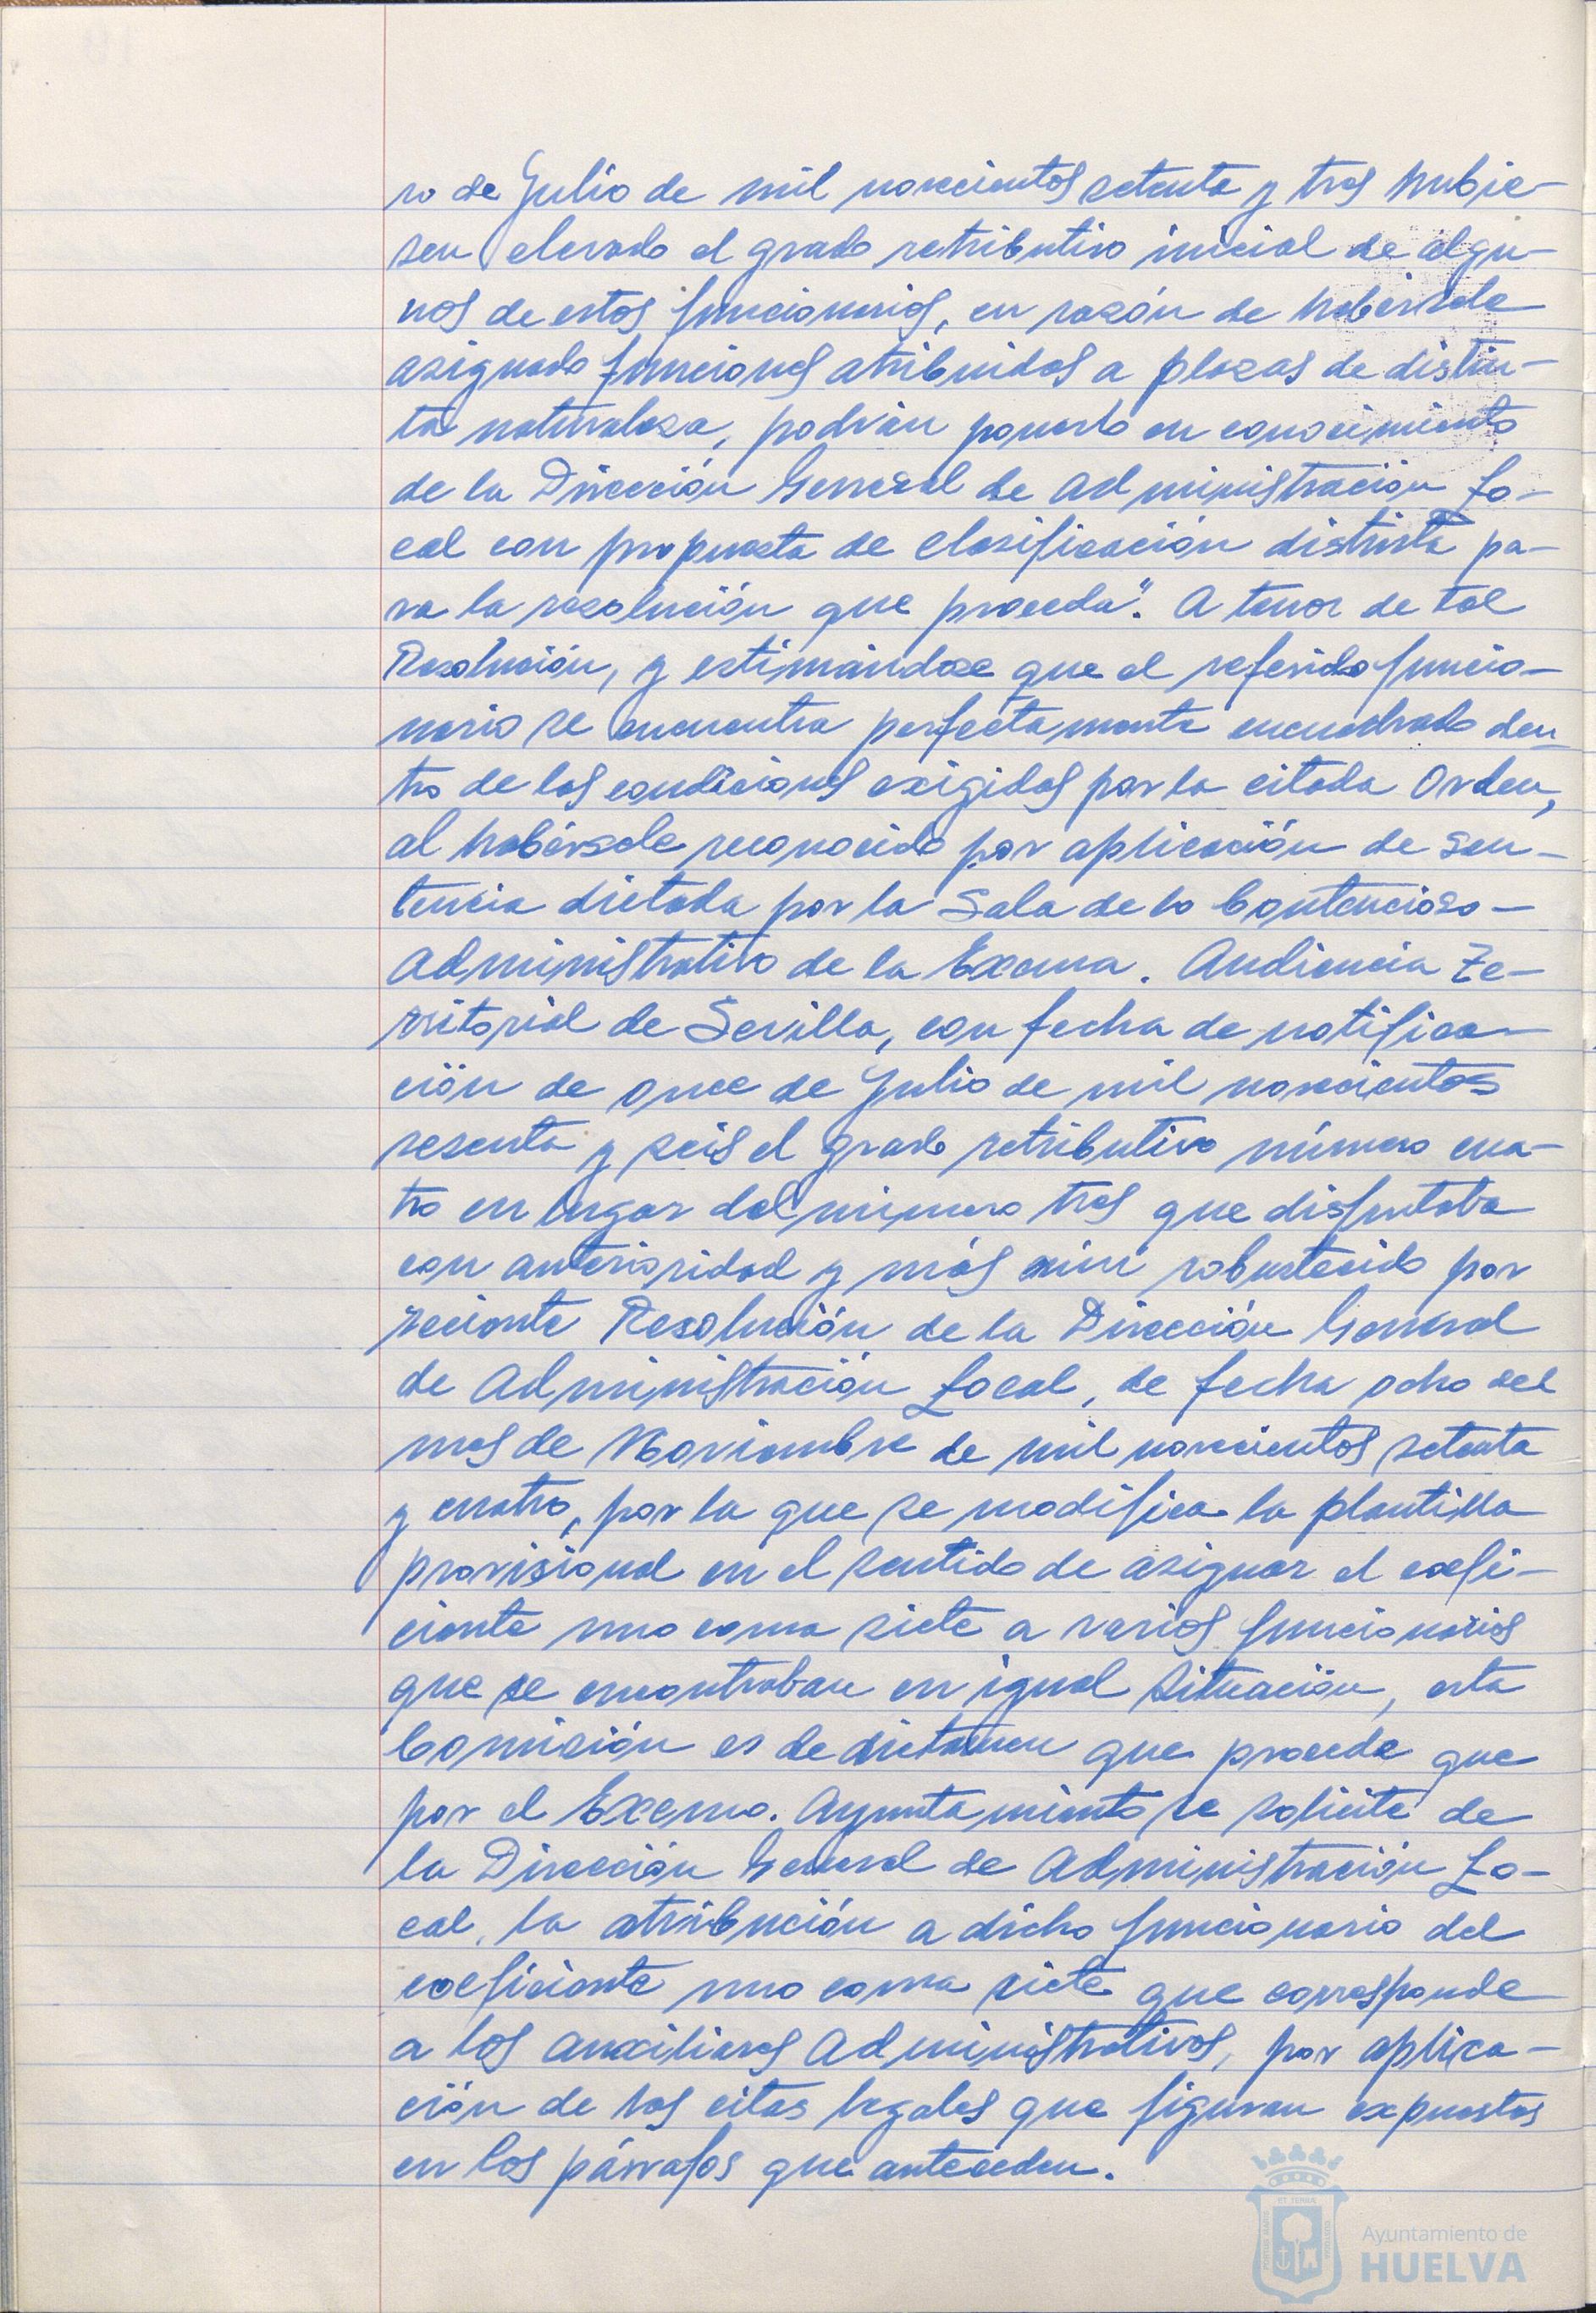 ro de Julio de mil novecientos setenta y tres hubie-
sen elevado el grado retributivo inicial de algu-
nos de estos funcionarios, en razón de habérsele
asignado funciones atribuidas a plazas de distin-
ta naturaleza, podrán ponerlo en conocimiento
de la Dirección General de Administración Lo-
cal con propuesta de clasificación distinta pa-
ra la resolución que proceda". A tenor de tal
Resolución, y estimándose que el referido funcio-
nario se encuentra perfectamente encuadrado den-
tro de las condiciones exigidas por la citada Orden,
al habérsele reconocido por aplicación de Sen-
tencia dictada por la Sala de lo Contencioso-
Administrativo de la Excma. Audiencia Te-
rritorial de Sevilla, con fecha de notifica-
ción de once de Julio de mil novecientos
sesenta y seis el grado retributivo número cua-
tro en lugar del número tres que disfrutaba
con anterioridad y más aún robustecido por
reciente Resolución de la Dirección General
de Administración Local, de fecha ocho del
mes de Noviembre de mil novecientos setenta
y cuatro, por la que se modifica la plantilla
provisional en el sentido de asignar el coefi-
ciente uno coma siete a varios funcionarios
que se encontraban en igual situación, esta
Comisión es de dictamen que procede que
por el Excmo. Ayuntamiento se solicite de
la Dirección General de Administración Lo-
cal, la atribución a dicho funcionario del
coeficiente uno coma siete que corresponde
a los Auxiliares Administrativos, por aplica-
ción de las citas legales que figuran expuestas
en los párrafos que anteceden.
Ayuntamiento de
HUELVA